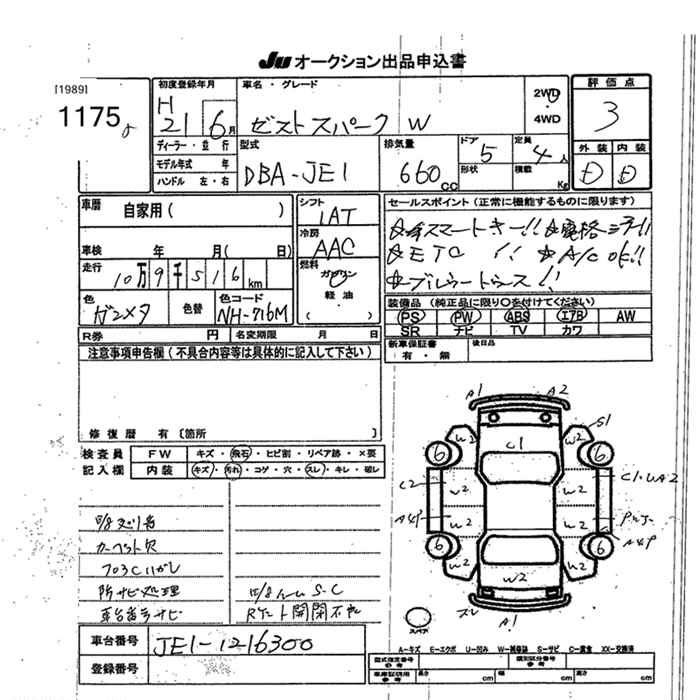 JU オークション出品申込書
[1989]
1175
初度登録年月
H 21 6月
車名・グレード
ゼストスパーク W
2WD
4WD
評価点
3
ディーラー・並行
モデル年式 年
ハンドル 左・右
型式
DBA-JE1
排気量
660 cc
ドア
5
形状
定員
4人
積載
Kg
外装 内装
D D
車歴
自家用( )
シフト
1AT
冷房
AAC
セールスポイント(正常に機能するものに限ります)
☆スマートキー!! ☆電格ミラー!!
☆ETC !! ☆A/C OK!!
☆ブルートゥース!!
車検 年 月( 日)
走行
10万9千516km
燃料
ガソリン
軽油・
( )
色
ガンメタ
色替
色コード
NH-716M
装備品(純正品に限り○を付けてください)
PS PW ABS エアB AW
SR ナビ TV カワ
R券 円 名変期限 月 日
新車保証書
有・無
後日品
注意事項申告欄(不具合内容等は具体的に記入して下さい)
修復歴 有〔箇所 〕
検査員
記入欄
FW キズ・飛石・ヒビ割・リペア跡・×要
内装 キズ・汚れ・コゲ・穴・スレ・キレ・破レ
カーペット欠
防サビ処理
車台番号サビ
S-C
車台番号
JE1-1216300
登録番号
A1 A2
W2 W2 S1
C1
6 6
C2 W2 W2 C1.UA2
A4P W2 W2
6 6 A4P
W2 W2 W2
スレ A1
スペア
A-キズ E-エクボ U-凹み W-補修跡 S-サビ C-腐食 XX-交換済
型式指定番号 類別区分番号
車庫証明用参考 長さ cm 幅 cm 高さ cm